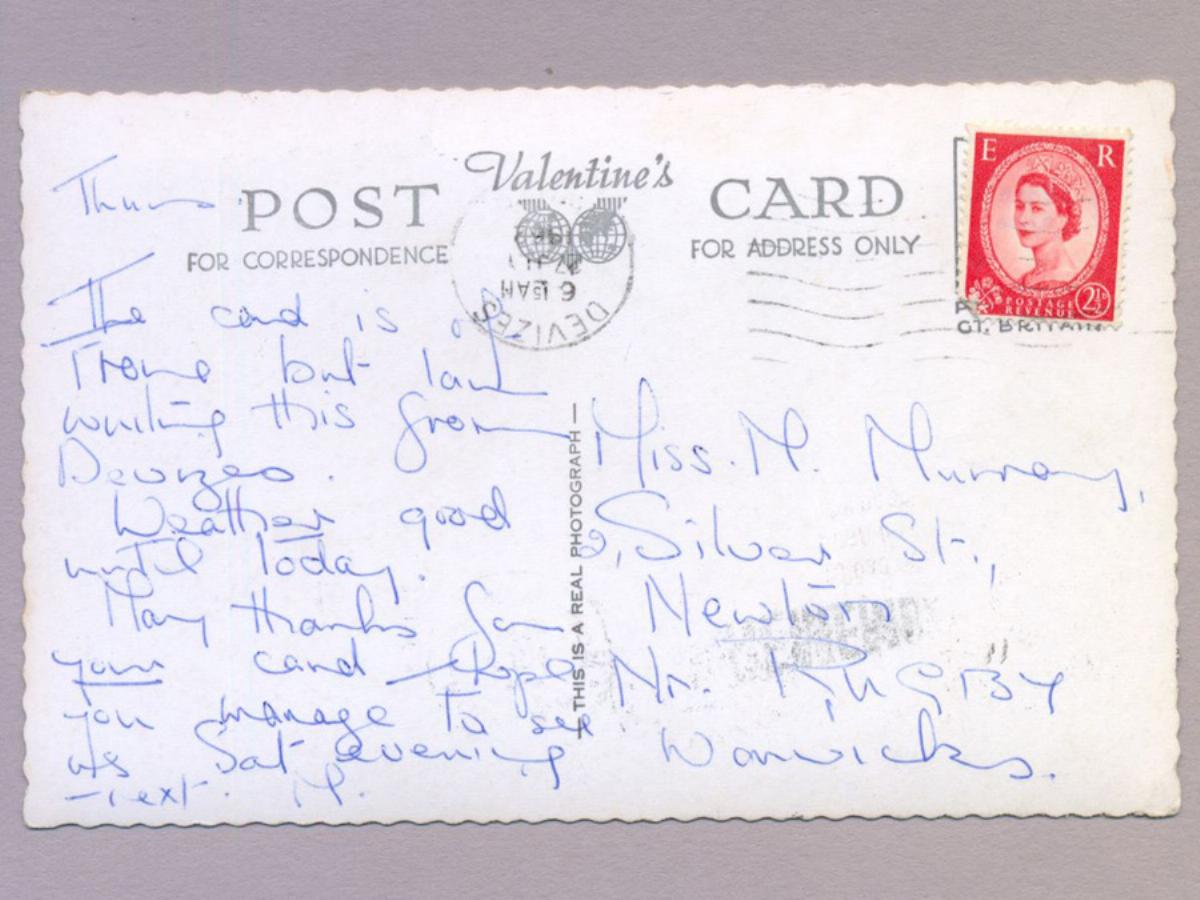 Valentine's
POST CARD
FOR CORRESPONDENCE
FOR ADDRESS ONLY
THIS IS A REAL PHOTOGRAPH
E R
POSTAGE
REVENUE
2½D
DEVIZES
6 15 AM
GT. BRITAIN
Thurs
The card is of
Frome but I am
writing this from
Devizes.
Weather good
until today.
Many thanks for
your card Hope
you manage to see
us Sat evening
next. M.
Miss. M. Murray,
2, Silver St.,
Newton
Nr. RUGBY
Warwicks.